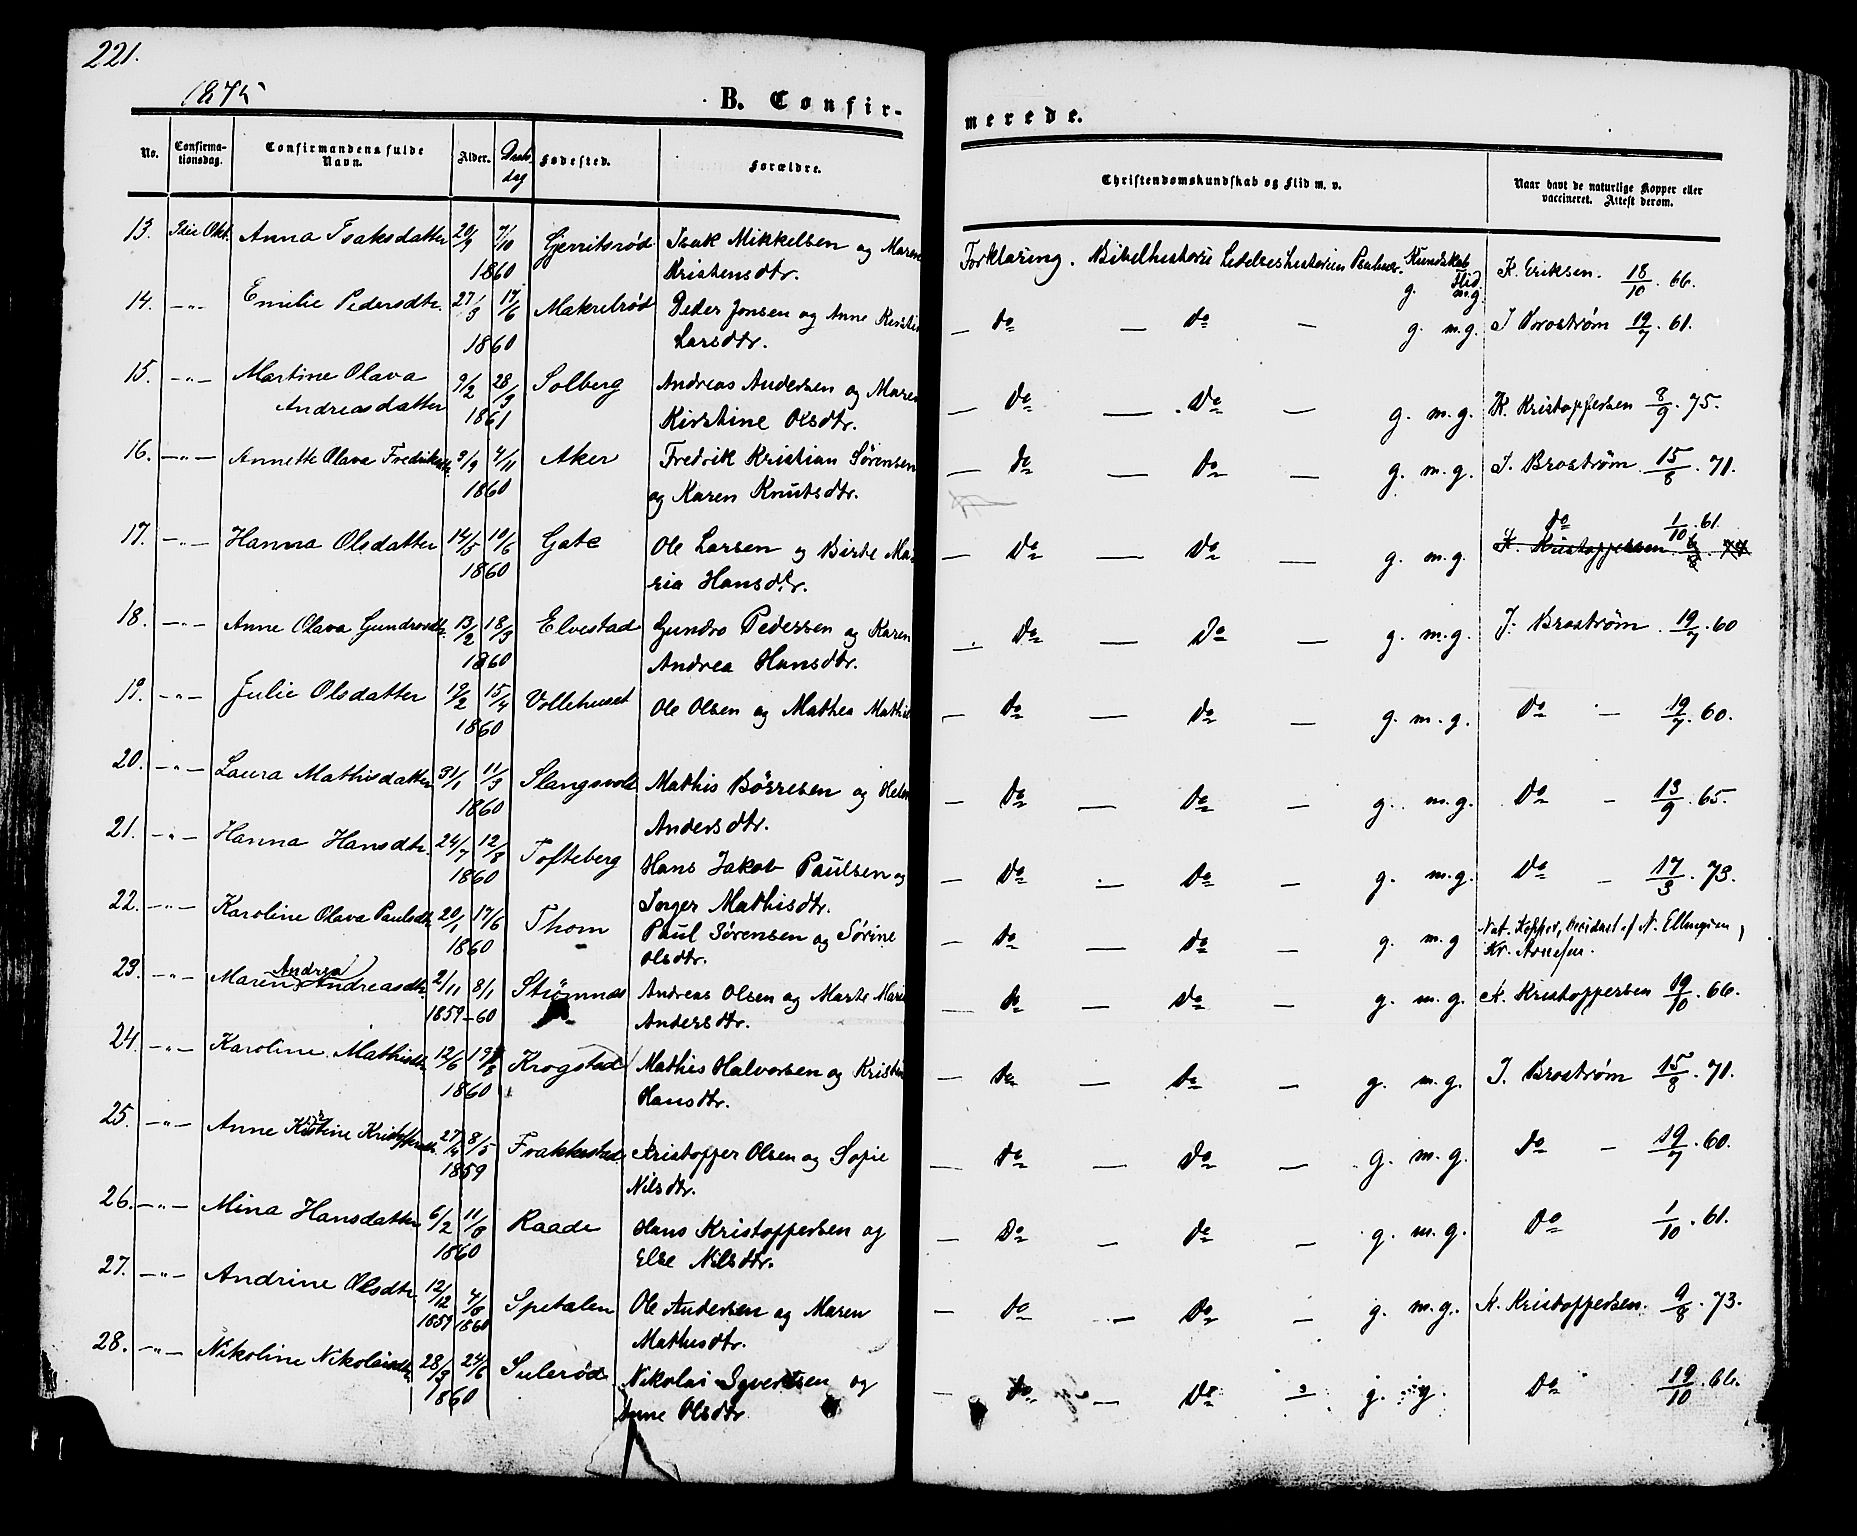 221.
1875
B. Confir-
merede.
No.
Confirma-
tionsdag.
Confirmandens fulde
Navn.
Alder.
Daabs
dag
Fødested.
Forældre.
Christendomskundskab og Flid m. v.
Naar havt de naturlige Kopper eller
vaccineret. Attest derom.
13. 10de Okt. Anna Isaksdatter 20/9 7/10 1860 Gjerritsrød Isak Mikkelsen og Maren
Kristensdtr.
Forklaring. Bibelhistorie Lidelseshistorien Psalmer. Kundskab g. Flid m.g. K. Eriksen. 18/10. 66.
14. -"- Emilie Pedersdtr. 27/3 17/6 1860 Makrelrød Peder Jonsen og Anne Kirstin
Larsdtr.
— do — do — g. m.g. J Brostrøm 19/7. 61.
15. -"- Martine Olava
Andreasdatter 9/2 28/3 1861 Solberg Andreas Andersen og Maren
Kirstine Olsdtr.
— Do — Do — g. m.g. K. Kristoffersen 8/9. 75.
16. -"- Annette Olava Fredriksdtr. 9/9 4/11 1860 Aker Fredrik Kristian Sørensen
og Karen Knutsdtr.
— do — Do — g. m.g. J. Brostrøm 15/8. 71.
17. -"- Hanna Olsdatter 14/5 10/6 1860 Gate Ole Larsen og Birte Ma-
ria Hansdtr.
— Do — Do — g. m.g. do 1/10. 61.
K. Kristoffersen
18. -"- Anne Olava Gundrosdtr. 13/2 18/3 1860 Elvestad Gundro Pedersen og Karen
Andrea Hansdtr.
— Do — Do — g. m.g. J. Brostrøm. 19/7. 60
19. -"- Julie Olsdatter 19/2 15/4 1860 Vollehuset Ole Olsen og Mathea Mathis
— Do — Do — g. m.g. Do — 19/7. 60.
20. -"- Laura Mathisdatter 31/1 11/3 1860 Slangsvold Mathis Børresen og Helen
Andersdtr.
— Do — Do — g. m.g. Do — 13/9. 65.
21. -"- Hanna Hansdtr. 24/7 12/8 1860 Tofteberg Hans Jakob Paulsen og
Inger Mathisdtr.
— Do — Do — g. m.g. Do — 17/3. 73.
22. -"- Karoline Olava Paulsdtr. 20/1 17/6 1860 Thom Paul Sørensen og Sørine
Olsdtr.
— Do — do — g. m.g Nat. Kopper, bevidnet af N. Ellingsen,
Kr. Arnesen.
23. -"- Maren Andrea Andreasdtr. 2/11 8/1 1859-60 Strømnæs Andreas Olsen og Marte Marie
Andersdtr.
— Do — Do — g. m.g. K. Kristoffersen 19/10. 66.
24. -"- Karoline Mathisdtr. 12/6 19/8 1860 Krogstad Mathis Halvorsen og Kristine
Hansdtr.
— do — do — g. m.g. J. Brostrøm 15/8. 71.
25. -"- Anne Kirstine Kristoffersdtr. 27/4 8/5 1859 Frakkestad Kristoffer Olsen og Sofie
Nilsdtr.
— Do — Do — g. m.g. Do — 19/7. 60.
26. -"- Mina Hansdatter 6/2 11/8 1860 Raade Hans Kristoffersen og
Else Nilsdtr.
— Do — do — g. m.g. Do 1/10. 61.
27. -"- Andrine Olsdtr. 12/12 4/8 1859 1860 Spetalen Ole Andersen og Maren
Mathisdtr.
— do — Do — g. m.g. K. Kristoffersen. 9/8. 73.
28. -"- Nikoline Nikolaisdtr. 28/3 24/6 1860 Sulerød Nikolai Syvertsen og
Anne Olsdtr
— do — Do — g. g. Do 19/10. 66.